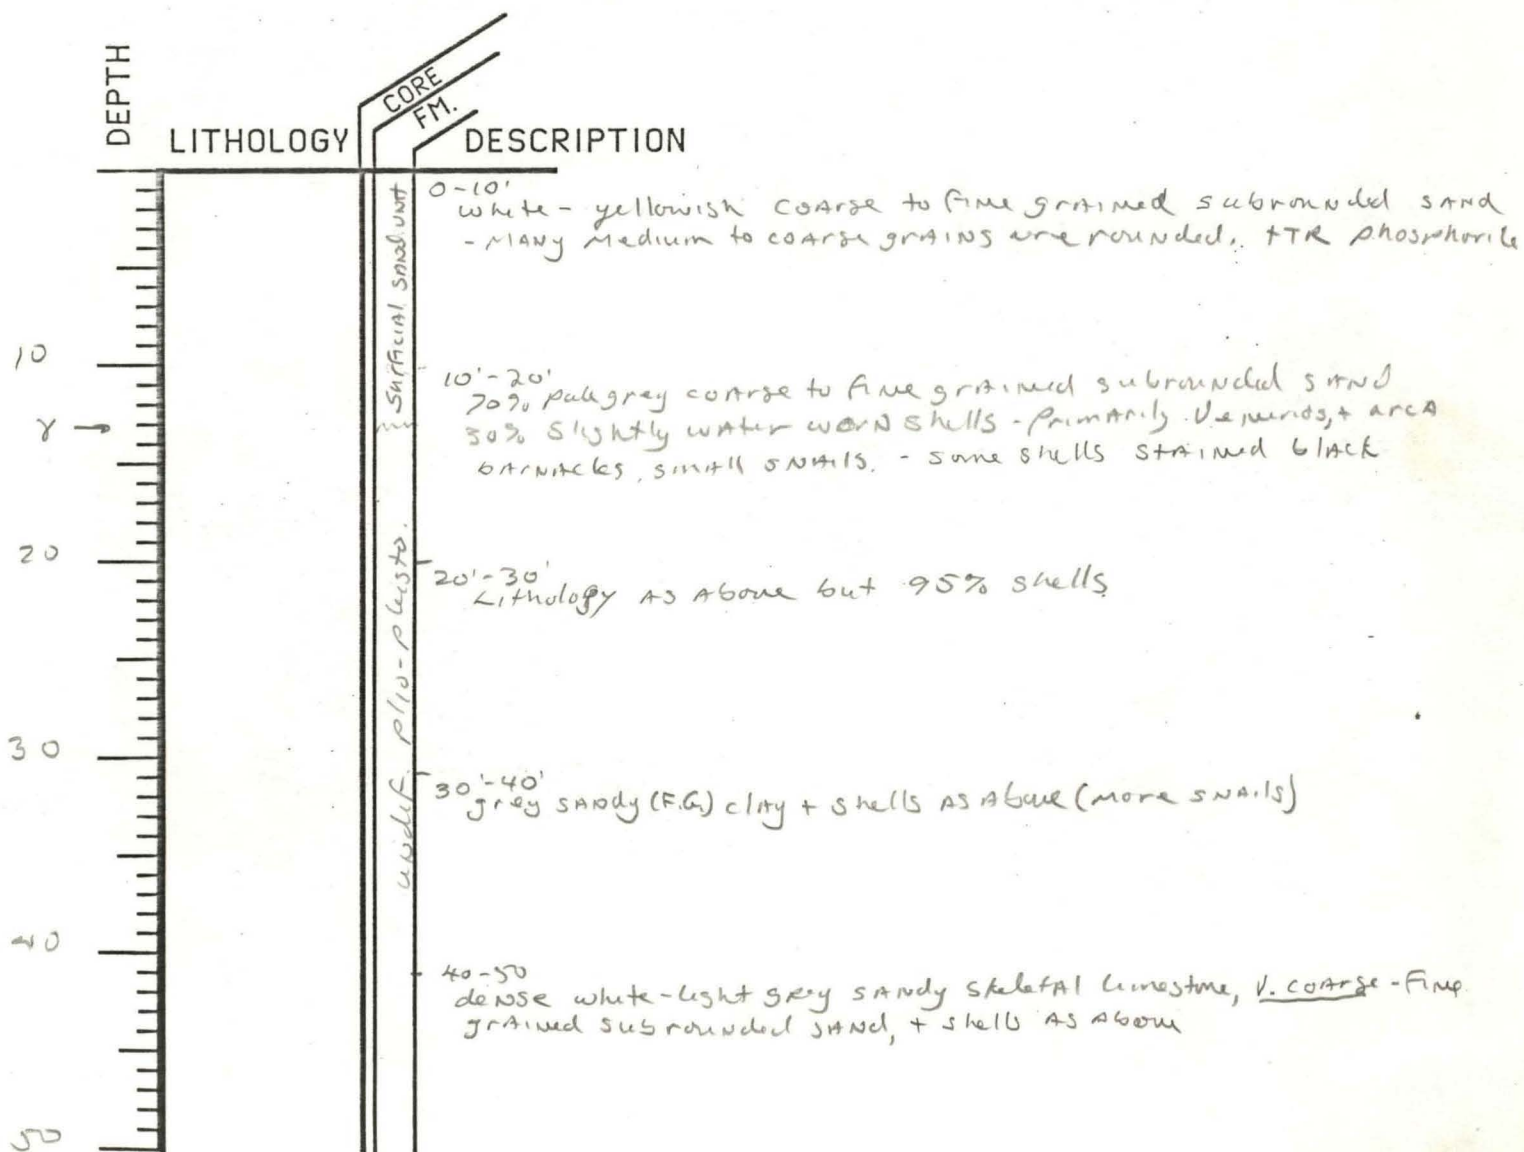 DEPTH
LITHOLOGY
CORE
FM.
DESCRIPTION
Surficial sand unit
undif. plio-pleisto.
0-10'
white - yellowish coarse to fine grained subrounded sand
- Many medium to coarse grains are rounded. +TR phosphorite
10
10'-20'
70% pale grey coarse to fine grained subrounded sand
γ →
30% slightly water worn shells - primarily Venerids, + arca
barnacles, small snails. - some shells stained black
20
20'-30'
Lithology as above but 95% shells
30
30'-40'
grey sandy (F.G.) clay + shells as above (more snails)
40
40-50
dense white-light grey sandy skeletal limestone, V. coarse - fine
grained subrounded sand, + shells as above
50